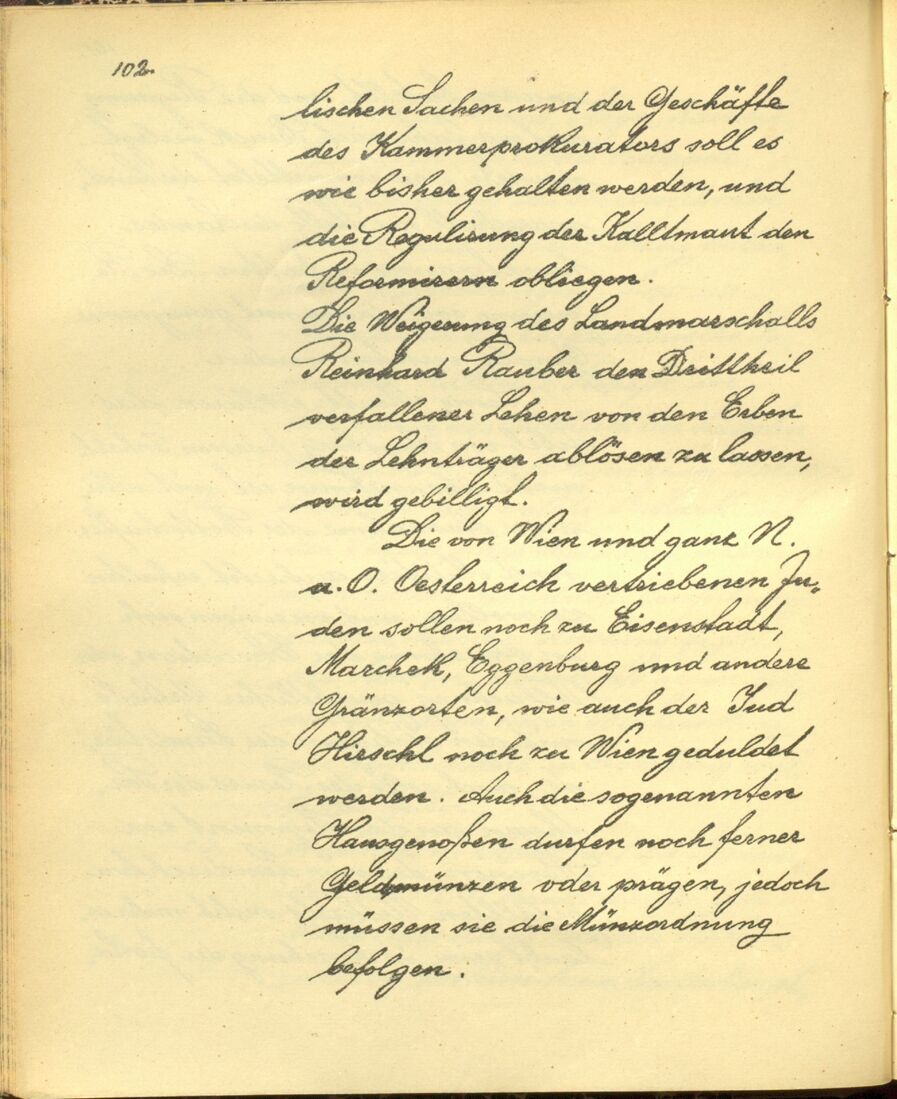 102.
lischen Sachen und der Geschäfte
des Kammerprokurators soll es
wie bisher gehalten werden, und
die Regulirung der Kalltmaut den
Reformirern obliegen.
Die Weigerung des Landmarschalls
Reinhard Rauber den Drittheil
verfallener Lehen von den Erben
der Lehnträger ablösen zu lassen,
wird gebilligt.
Die von Wien und ganz N.
u. O. Oesterreich vertriebenen Ju-
den sollen noch zu Eisenstadt,
Marchek, Eggenburg und andere
Gränzorten, wie auch der Jud
Hirschl noch zu Wien geduldet
werden. Auch die sogenannten
Hausgenoßen durfen noch ferner
Geld münzen oder prägen, jedoch
müssen sie die Münzordnung
befolgen.